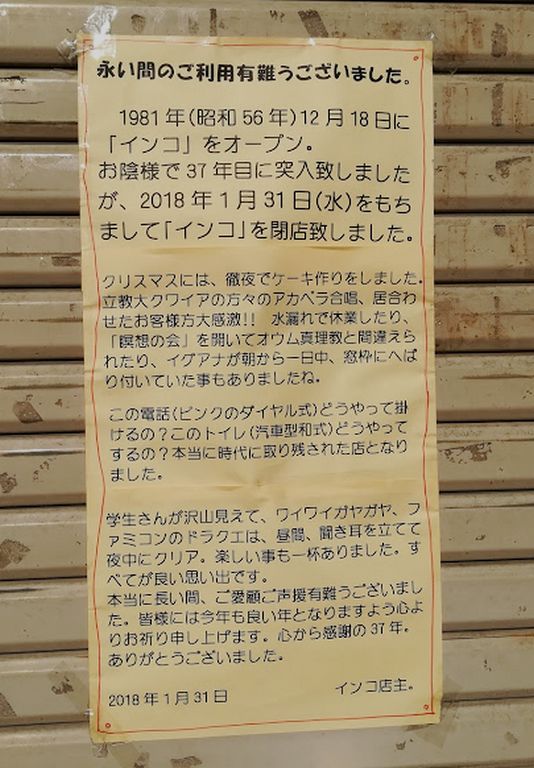 永い間のご利用有難うございました。
1981年(昭和56年)12月18日に
「インコ」をオープン。
お陰様で37年目に突入致しました
が、2018年1月31日(水)をもち
まして「インコ」を閉店致しました。
クリスマスには、徹夜でケーキ作りをしました。
立教大クワイアの方々のアカペラ合唱、居合わ
せたお客様方大感激!! 水漏れで休業したり、
「瞑想の会」を開いてオウム真理教と間違えら
れたり、イグアナが朝から一日中、窓枠にへば
り付いていた事もありましたね。
この電話(ピンクのダイヤル式)どうやって掛
けるの?このトイレ(汽車型和式)どうやって
するの?本当に時代に取り残された店となり
ました。
学生さんが沢山見えて、ワイワイガヤガヤ、フ
ァミコンのドラクエは、昼間、聞き耳を立てて
夜中にクリア。楽しい事も一杯ありました。す
べてが良い思い出です。
本当に長い間、ご愛顧ご声援有難うございまし
た。皆様には今年も良い年となりますよう心よ
りお祈り申し上げます。心から感謝の37年。
ありがとうございました。
2018年1月31日 インコ店主。